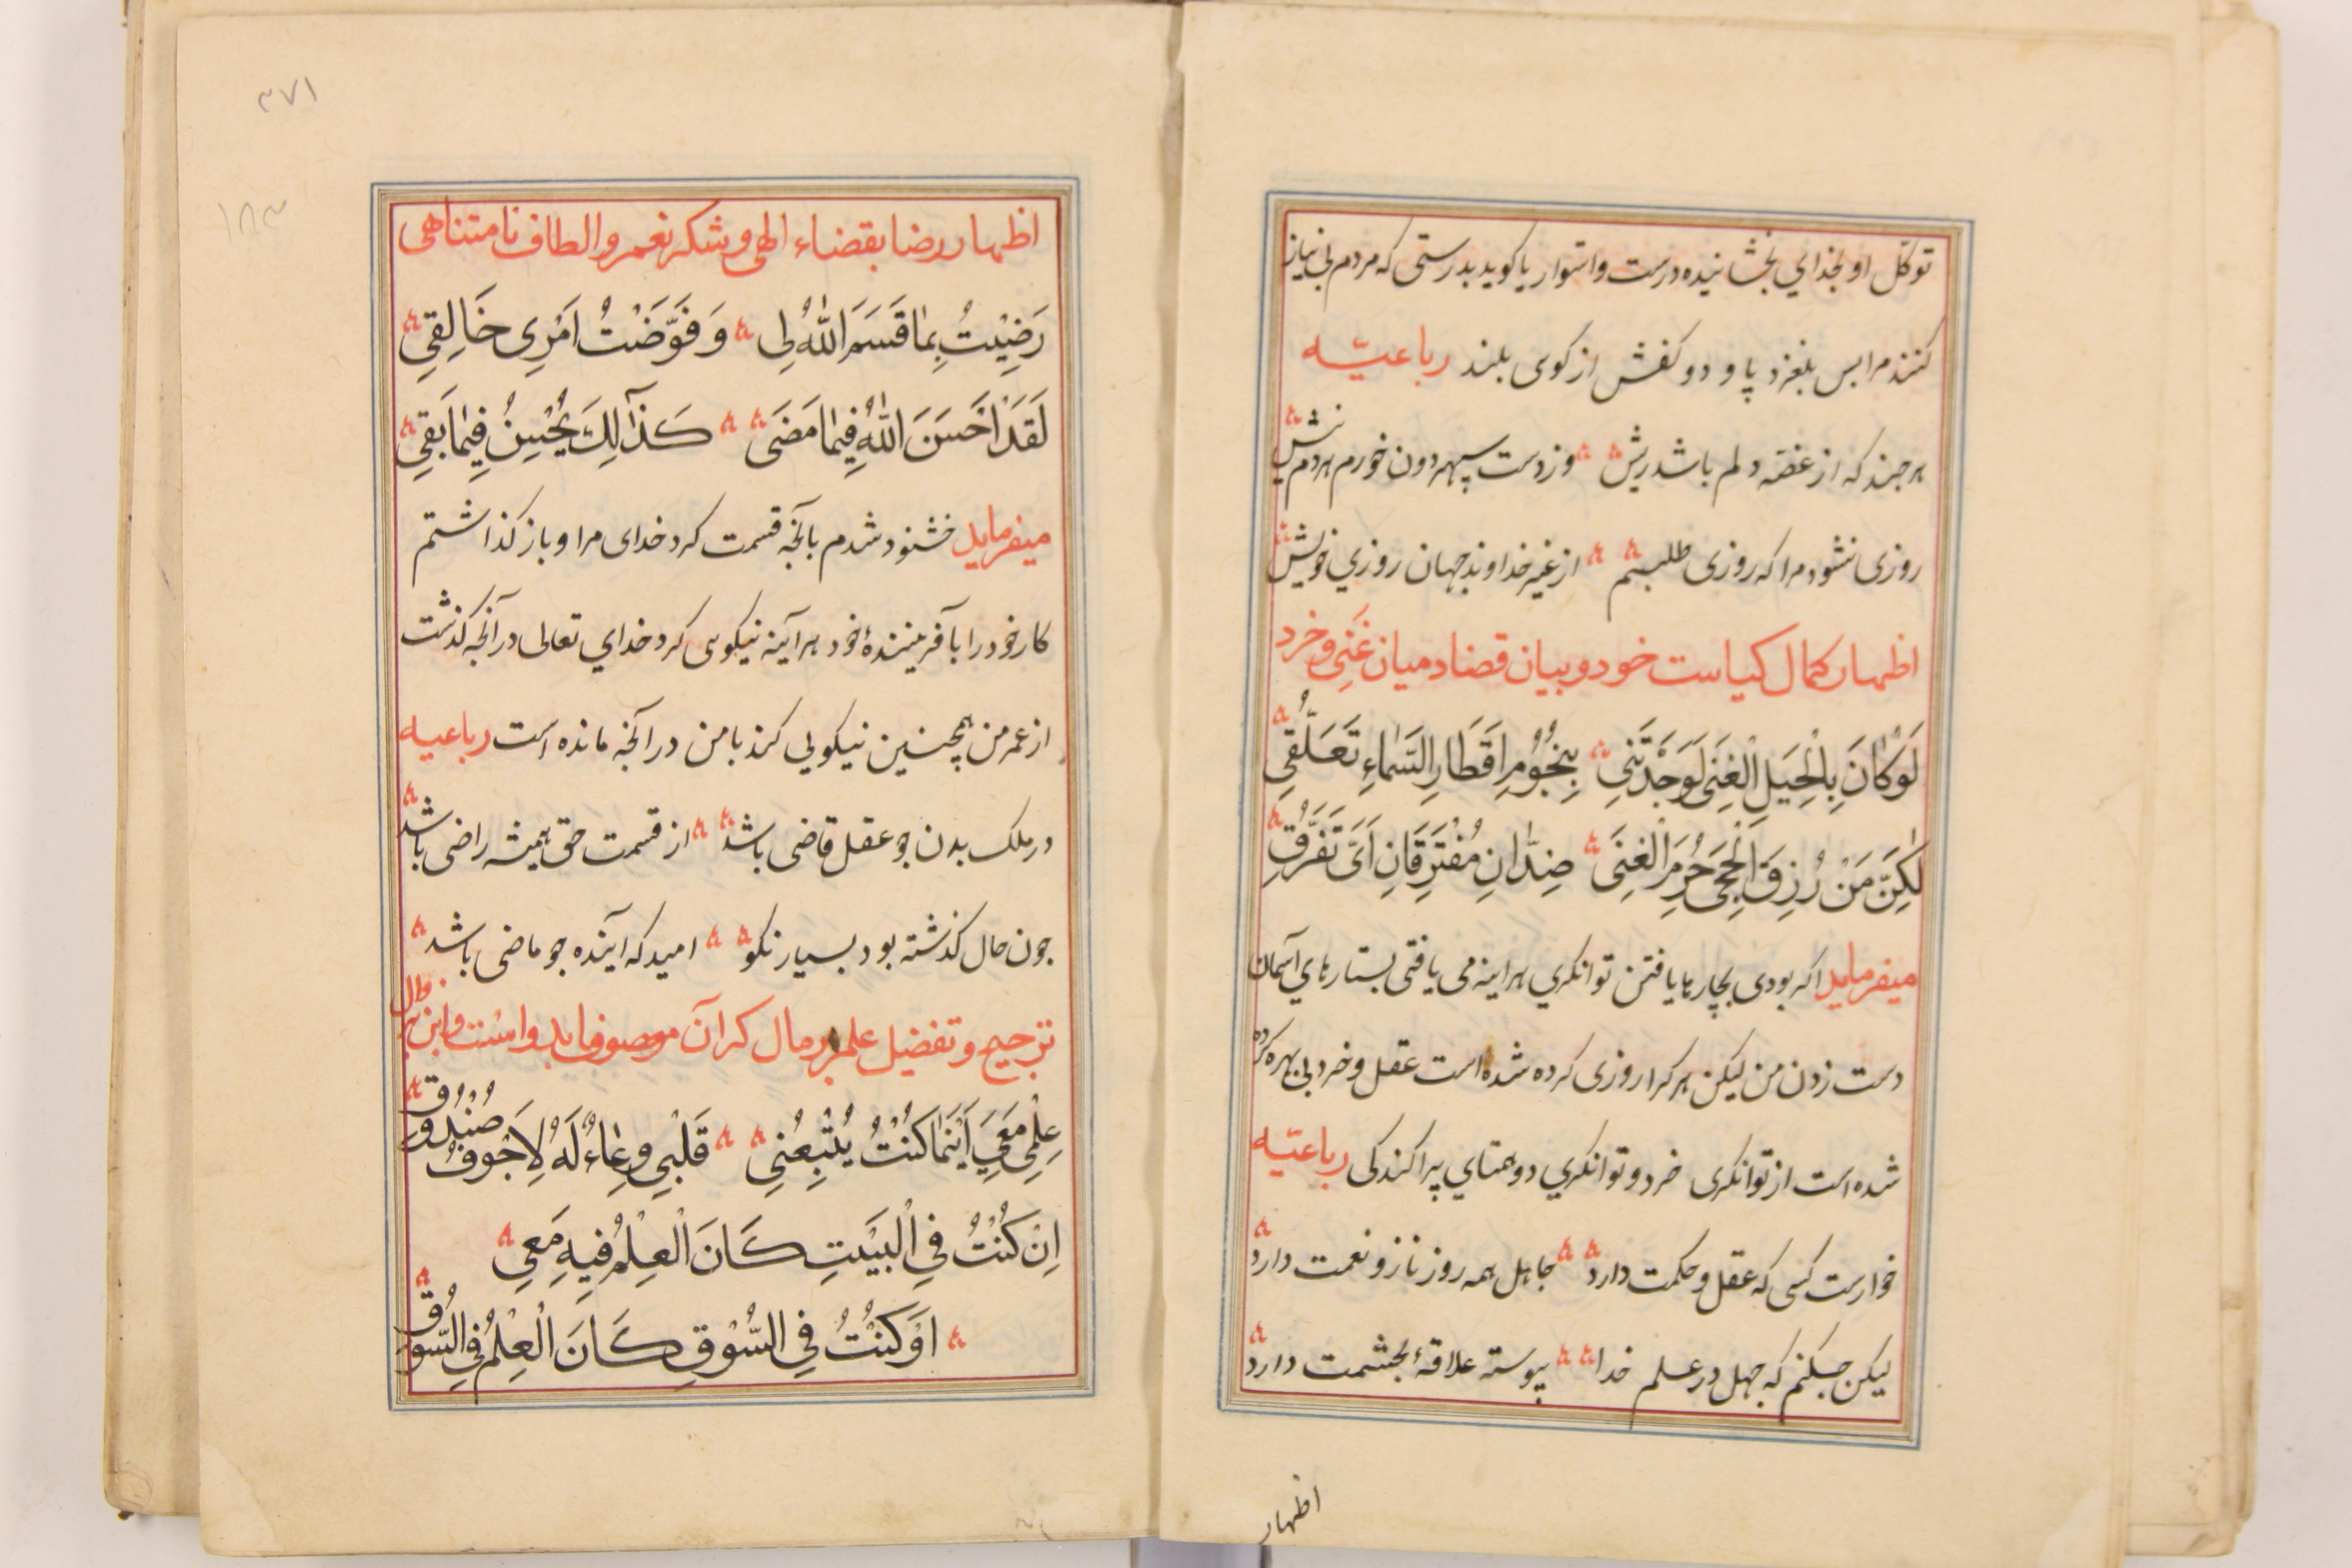 توکّل او بخدای بخشانیده درست واستوار یا کوید بدرستی که مردم بی نیاز
کنند مرا بس بلغزد پا و دو کفش از کوی بلند رباعیّه
هر چند که از غصّه دلم باشد ریش وز دست سپهر دون خورم هر دم نیش
روزی نشود مرا که روزی طلبم از غیر خداوند جهان روزی خویش
اظهار کمال کیاست خود و بیان قضاد میان غَنِی و خرد
لَوْ كَانَ بِالْحِيَلِ الْغِنَى لَوَجَدْتَنِي بِنُجُوْمِ اَقْطَارِ السَّمَاءِ تَعَلُّقِي
لٰكِنَّ مَنْ رُزِقَ الْحِجَى حُرِمَ الْغِنَى ضِدَّانِ مُفْتَرِقَانِ اَىَّ تَفَرُّقِ
میفرماید اکه بودی بچارها یافتن توانکری هر اینه می یافتی بستارهای آسمان
دست زدن من لیکن هر کرا روزی کرده شده است عقل و خرد بی بهره کرده
شده است از توانکری خرد و توانکری دو همتای پراکندکی رباعیّه
خوارست کسی که عقل و حکمت دارد جاهل همه روز ناز و نعمت دارد
لیکن چکنم که جهل در علم خدا پیوسته علاقهٔ بحشمت دارد
اظهار
۳۷۱
۱۸۳
اظهار رضا بقضاء الهی و شکر نعم و الطاف نامتناهی
رَضِيْتُ بِمَا قَسَمَ اللّٰهُ لِى وَ فَوَّضْتُ اَمْرِى خَالِقِي
لَقَدْ اَحْسَنَ اللّٰهُ فِيْمَا مَضَى كَذٰلِكَ يُحْسِنُ فِيْمَا بَقِي
میفرماید خشنود شدم بآنچه قسمت کرد خدای مرا و باز کذاشتم
کار خود را بآفریننده خود هر آینه نیکوی کرد خدای تعالی در آنچه کذشت
از عمر من همچنین نیکویی کند با من در آنچه مانده است رباعیه
در ملک بدن چو عقل قاضی باشد از قسمت حق همیشه راضی باشد
چون حال کذشته بود بسیار نکو امید که آینده چو ماضی باشد
ترجیح و تفضیل علم بر مال کرآن موصوف
عِلْمِى مَعِيَ اَيْنَمَا كُنْتُ يُتْبِعُنِي قَلْبِى وِعَاءٌ لَهُ لَا جَوْفُ صُنْدُوْقِ
اِنْ كُنْتُ فِي الْبَيْتِ كَانَ الْعِلْمُ فِيهِ مَعِي
اَوْ كُنْتُ فِي السُّوْقِ كَانَ الْعِلْمُ فِي السُّوْقِ